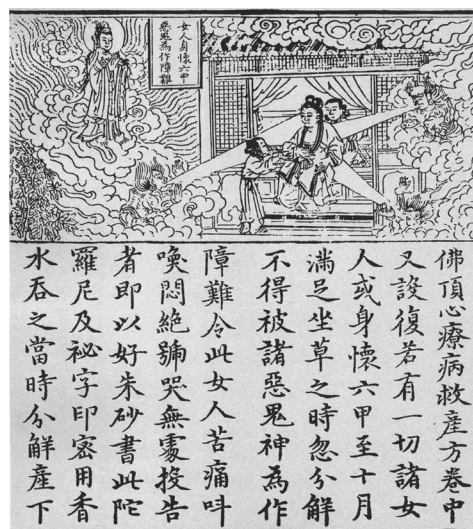 女人身懷六甲
惡鬼為作障難
佛頂心療病救産方卷中
又設復若有一切諸女
人或身懷六甲至十月
滿足坐草之時忽分解
不得被諸惡鬼神為作
障難令此女人苦痛叫
喚悶絕號哭無處投告
者即以好朱砂書此陀
羅尼及祕字印密用香
水吞之當時分解産下